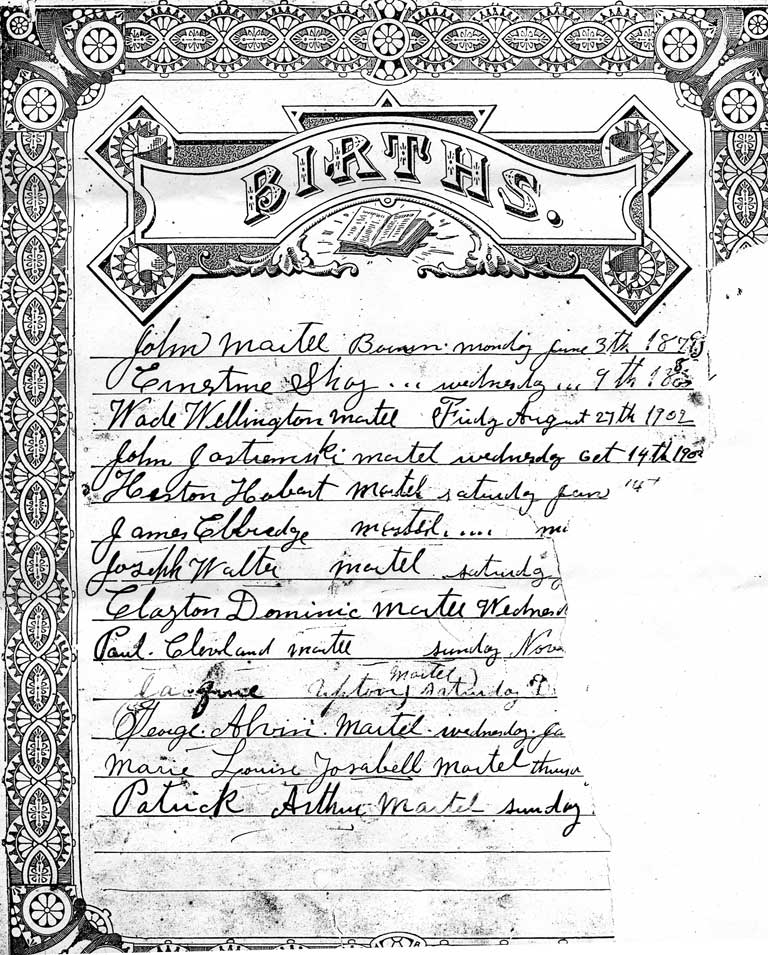 BIRTHS.
John Martel Bournn. monday june 3th 187
Ernstine Shay ... wednesday ... 9th 18
Wade Wellington martel Friday August 27th 1902
John Jastremski martel wednesday oct 14th 190
Heston Hobart Martel saturday jan 14
James Elbridge martel.....
Joseph Walter martel saturday
Clayton Dominic Martel Wednesd
Paul. Clevland martel sunday Nov
Upton Martel saturday
George. Alvin. Martel. wednesday. ja
Marie Louise Josabell Martel thurs
Patrick Arthur Martel sunday